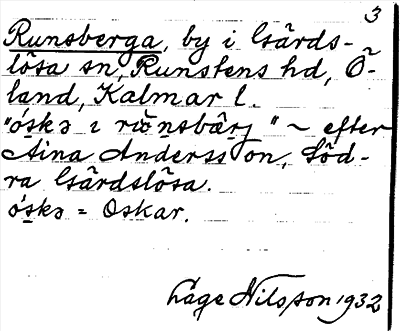 3
Runsberga, by i Gärds-
lösa sn, Runstens hd, Ö-
land, Kalmar l.
"óskə i rùnsbärj" ~ efter
Aina Andersson, Söd-
ra Gärdslösa.
óskə = Oskar.
Låge Nilsson 1932